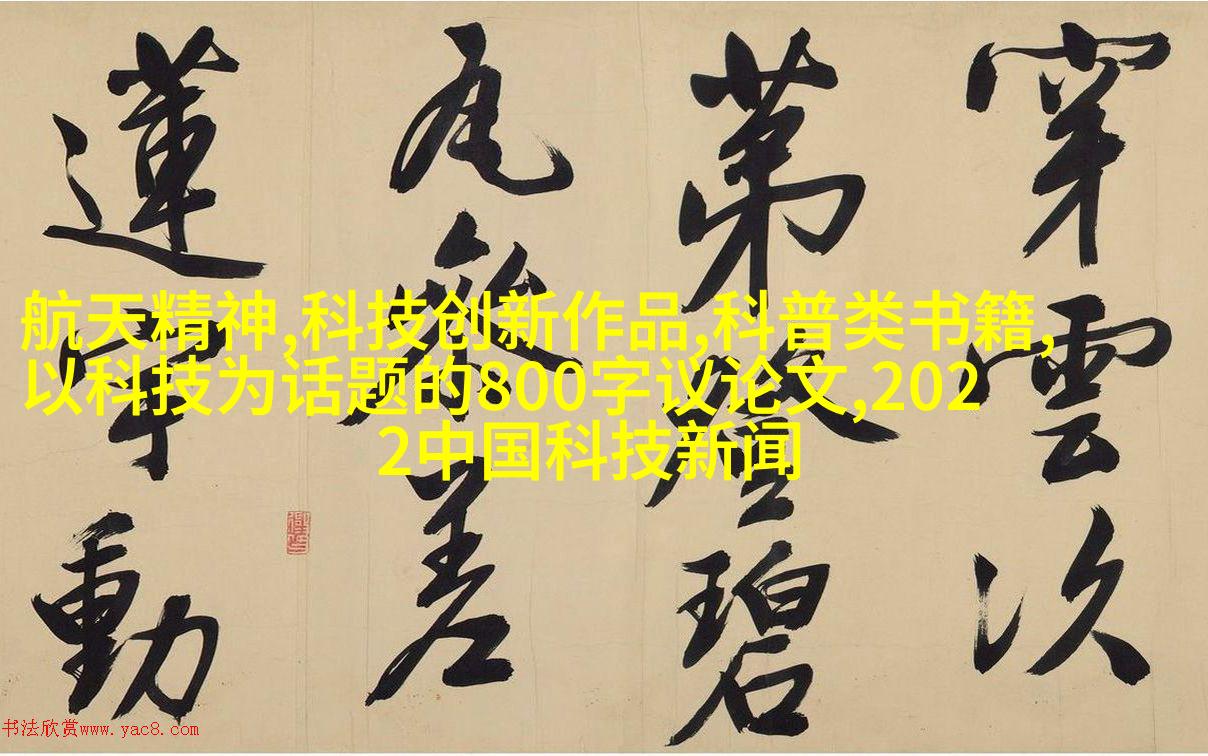 穿雲次
第碧
瓦參差
蓮宇動
航天精神,科技创新作品,科普类书籍,
以科技为话题的800字议论文,202
2中国科技新闻
书法欣赏www.yac8.com